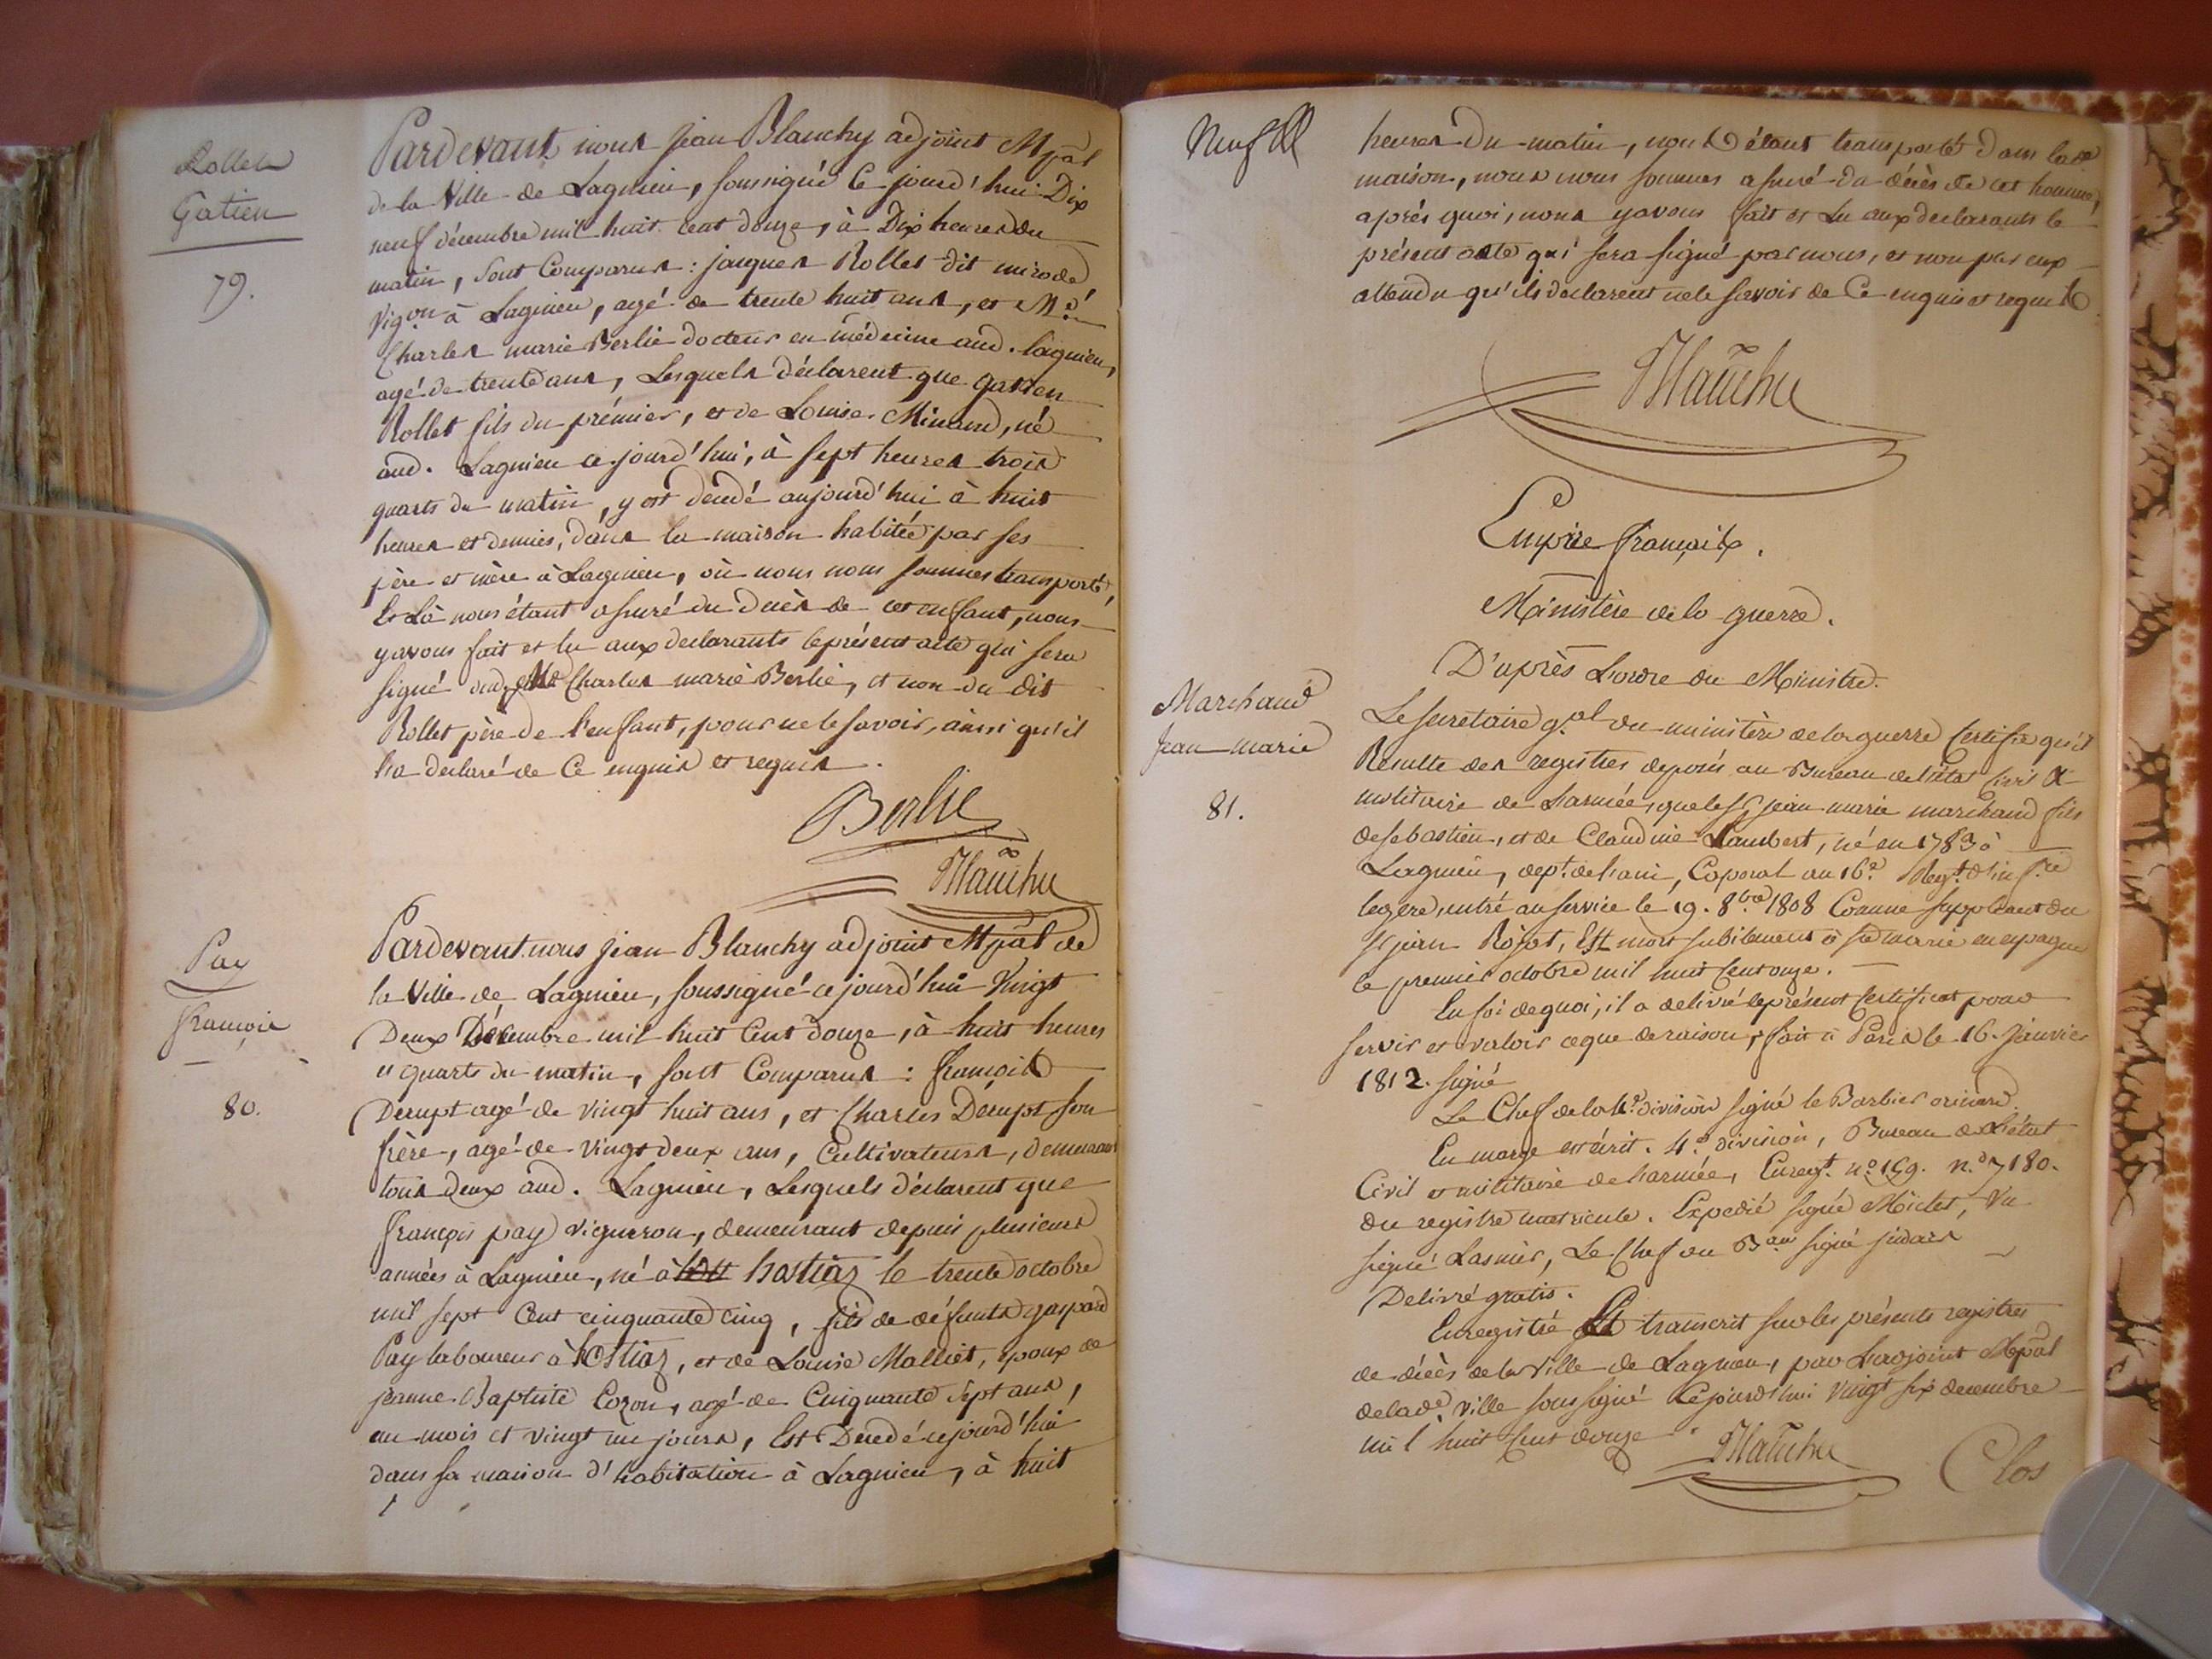 Rollet
Gatien
79.
Pardevant nous jean Blanchy adjoint Mpal
de la Ville de Lagnieu, soussigné Ce jourd'hui Dix
neuf décembre mil huit cent douze, à Dix heures du
matin, sont Comparus : jacques Rollet dit mirode
Vigon à Lagnieu, agé de trente huit ans, et Mr
Charles marie Berlie docteur en médecine aud. lagnieu,
agé de trente ans, Lesquels déclarent que gatien
Rollet fils du prémier, et de Louise Minand, né
aud. Lagnieu ce jourd'hui, à sept heures trois
quarts du matin, y est décédé aujourd'hui à huit
heures et demies, dans la maison habitée par ses
père et mère à Lagnieu, où nous nous sommes transporté,
Et Là nous étant assuré du décès de cet enfant, nous
y avons fait et lu aux declarants le présent acte qui sera
signé Charles marie Berlie, et non du dit
Rollet père de l'enfant, pour ne le savoir, ainsi qu'il
l'a declaré de Ce enquis et requis.
Berlie
Blanchy
Pay
françois
80.
Pardevant nous jean Blanchy adjoint Mpal de
la Ville de Lagnieu, soussigné ce jourd'hui Vingt
Deux Décembre mil huit Cent douze, à huit heures
quarts du matin, sont Comparus : françois
Decrupt agé de vingt huit ans, et Charles Decrupt son
frère, agé de vingt deux ans, Cultivateurs, demeurant
tous deux aud. Lagnieu, Lesquels déclarent que
françois pay vigneron, demeurant depuis plusieurs
années à Lagnieu, né à hostiaz le trente octobre
mil sept Cent cinquante cinq, fils de défunts gaspard
Pay laboureur à hostiaz, et de Louise Malliet, époux de
jeanne Baptiste Cozon, agé de Cinquante sept ans,
un mois et vingt un jours, Est Décédé ce jourd'hui
dans sa maison d'habitation à Lagnieu, à huit
Neuf
heures du matin, nous étant transporté dans lade
maison, nous nous sommes assuré du décès de cet homme,
après quoi, nous y avons fait et Lu aux declarants le
présent acte qui sera signé par nous, et non par eux
attendu qu'ils declarent ne le savoir de Ce enquis et requis
Blanchy
Empire français.
Ministère de la guerre.
D'après L'ordre du Ministre.
Marchand
Jean marie
81.
Le secretaire g.al du ministère de la guerre Certifie qu'il
Résulte des registres deposés au Bureau de l'état Civil et
militaire de L'armée, que le Sr jean marie marchand fils
de sebastien, et de Claudine Lambert, né en 1783 à
Lagnieu, dept. de l'ain, Caporal au 16.e Regt. d'inf.rie
legere, entré au service le 19. 8bre 1808 Comme suppleant du
Sr jean Rojot, Est mort subitement à ste marie en espagne
le premier octobre mil huit Cent onze.
En foi de quoi, il a delivré le présent Certificat pour
servir et valoir ce que de raison, fait à Paris le 16. Janvier
1812. signé
Le Chef de la 4.e division signé le Barbier
En marge est écrit. 4.e division, Bureau de L'état
Civil et militaire de l'armée, Enregt. n.o 159. n.o 7180.
du registre matricule. Expedié signé Miclet, Vu
signé Lasnier, Le Chef du Bau signé judas
Delivré gratis.
Enregistré Et transcrit sur les présents registres
de décès de la Ville de Lagnieu, par L'adjoint Mpal
de lade Ville soussigné Ce jourd'hui vingt six decembre
mil huit Cent douze.
Blanchy
Clos